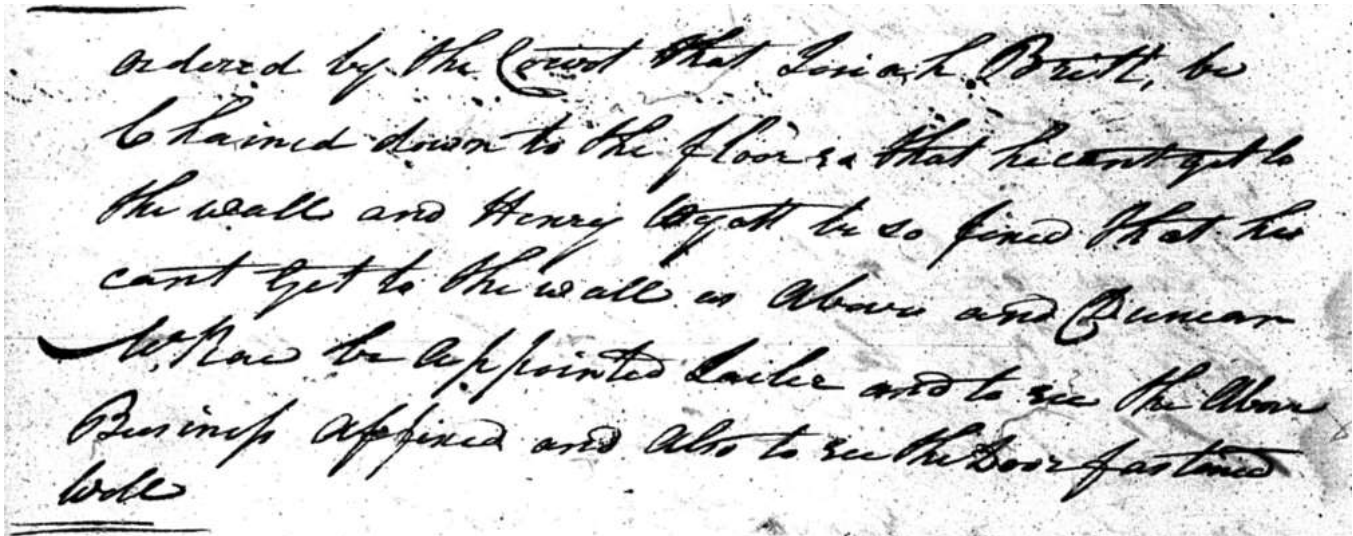 ordered by the Court that Josiah Britt, be
Chained down to the floor so that he cant get to
the wall and Henry Wyatt be so fixed that he
cant Get to the wall as Above and Duncan
McRae be Appointed Jailer and to see the Above
Business affixed and Also to see the Door fastened
Well